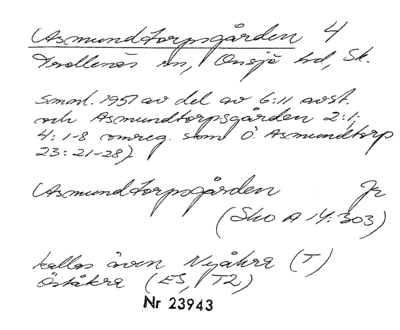 Asmundtorpsgården 4
Trollenäs sn, Onsjö hd, Sk.
Smnl. 1951 av del av 6:11 avst.
och Asmundtorpsgården 2:1;
4:1-8 omreg. som Ö. Asmundtorp
23:21-28)
Asmundtorpsgården Jr
(Sko A 14:303)
kallas även Nyåkra (T)
Öståkra (ES, T2)
Nr 23943